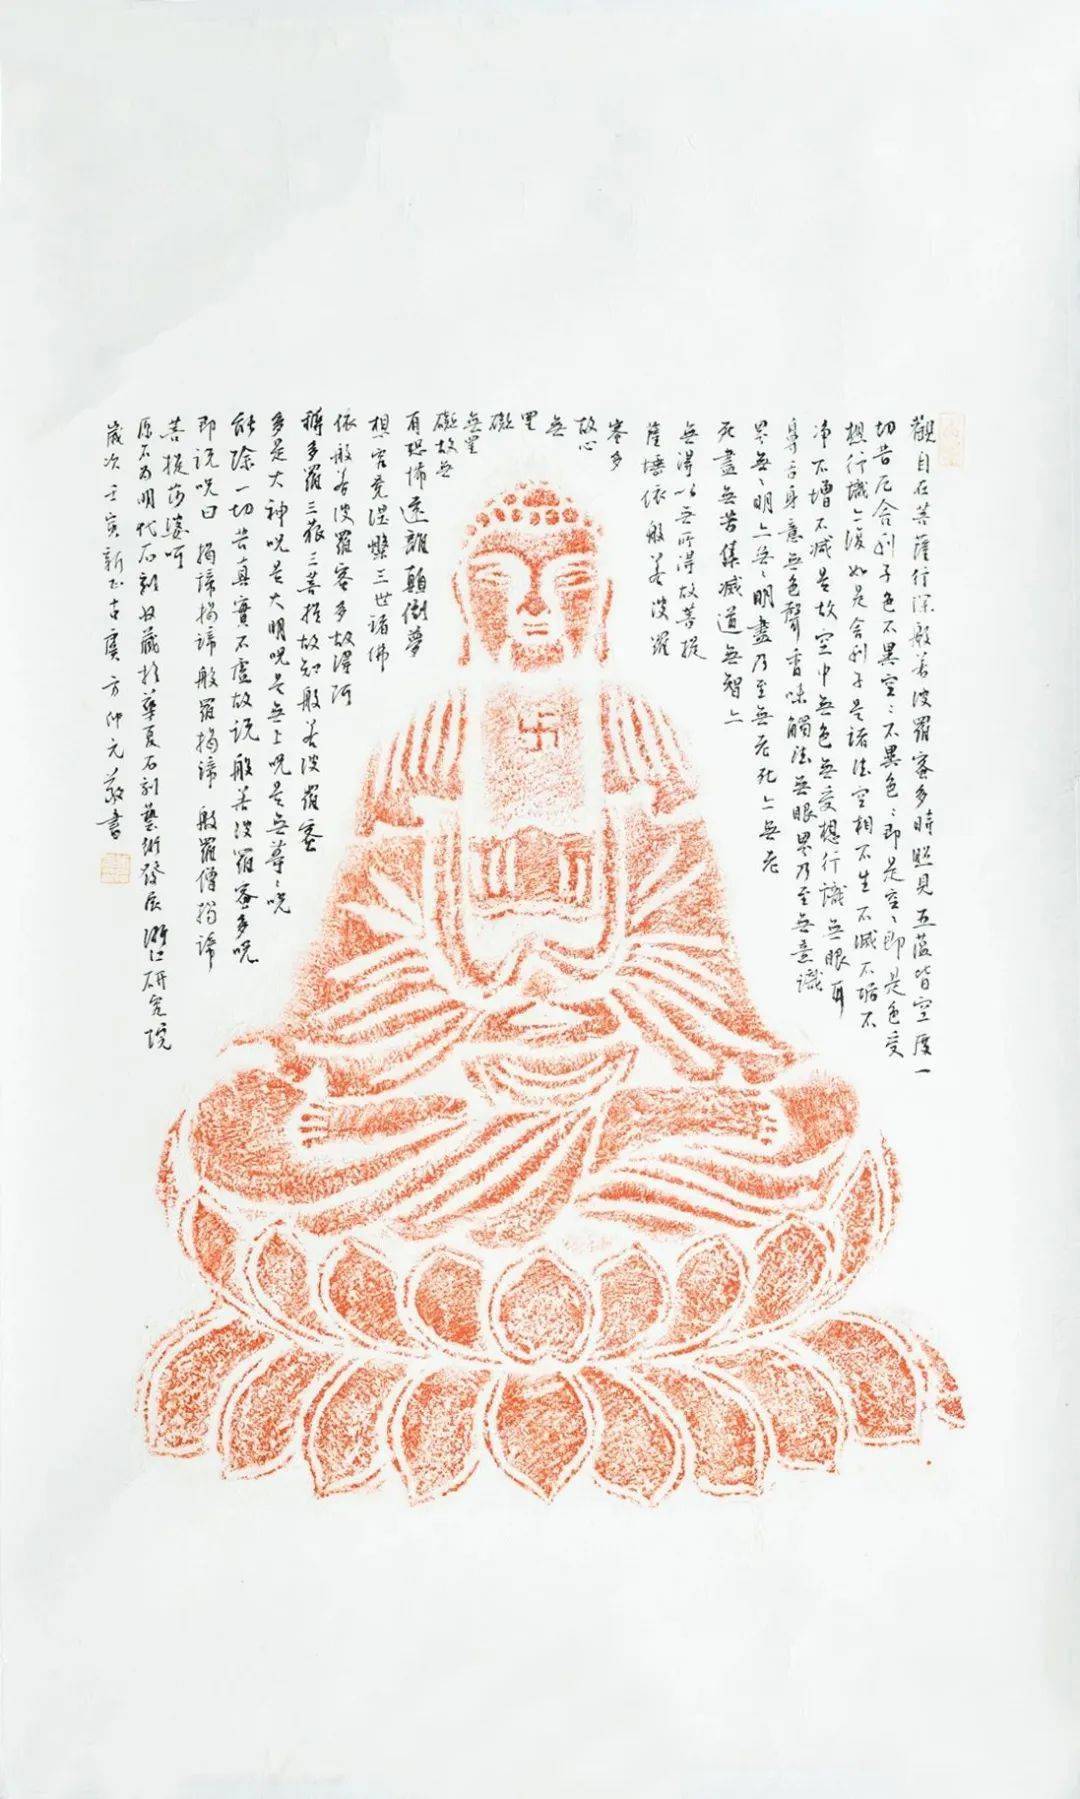 觀自在菩薩行深般若波羅蜜多時照見五蘊皆空度一
切苦厄舍利子色不異空〻不異色〻即是空〻即是色受
想行識亦復如是舍利子是諸法空相不生不滅不垢不
淨不增不減是故空中無色無受想行識無眼耳
鼻舌身意無色聲香味觸法無眼界乃至無意識
界無〻明亦無〻明盡乃至無老死亦無老
死盡無苦集滅道無智亦
無得以無所得故菩提
薩埵依般若波羅
蜜多
故心
無
罣
礙
無罣
礙故無
有恐怖遠離顛倒夢
想究竟涅槃三世諸佛
依般若波羅蜜多故得阿
耨多羅三藐三菩提故知般若波羅蜜
多是大神咒是大明咒是無上咒是無等〻咒
能除一切苦真實不虛故說般若波羅蜜多咒
即說咒曰揭諦揭諦般羅揭諦般羅僧揭諦
菩提莎婆呵
原石為明代石刻收藏於華夏石刻藝術發展浙江研究院
歲次壬寅新正古虞方仲元敬書